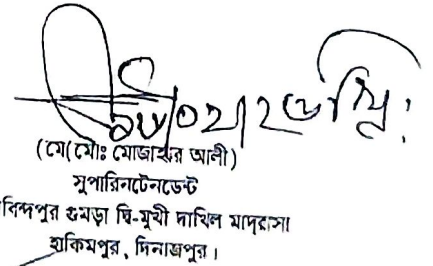 (মো(মৌঃ মোজাহার আলী)
সুপারিনটেনডেন্ট
বিন্দপুর গুমড়া দ্বি-মুখী দাখিল মাদ্রাসা
হাকিমপুর, দিনাজপুর।